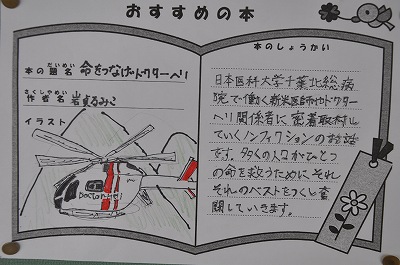 おすすめの本
だいめい
本の題名 命をつなげ!ドクターヘリ
さくしゃめい
作者名 岩貞るみこ
イラスト
Doctor Heli
本のしょうかい
日本医科大学千葉北総病
院で働く新米医師やドクター
ヘリ関係者に密着取材し
ていくノンフィクションのお話
です。多くの人々がひとつ
の命を救うためにそれぞ
それのベストをつくし奮
闘していきます。